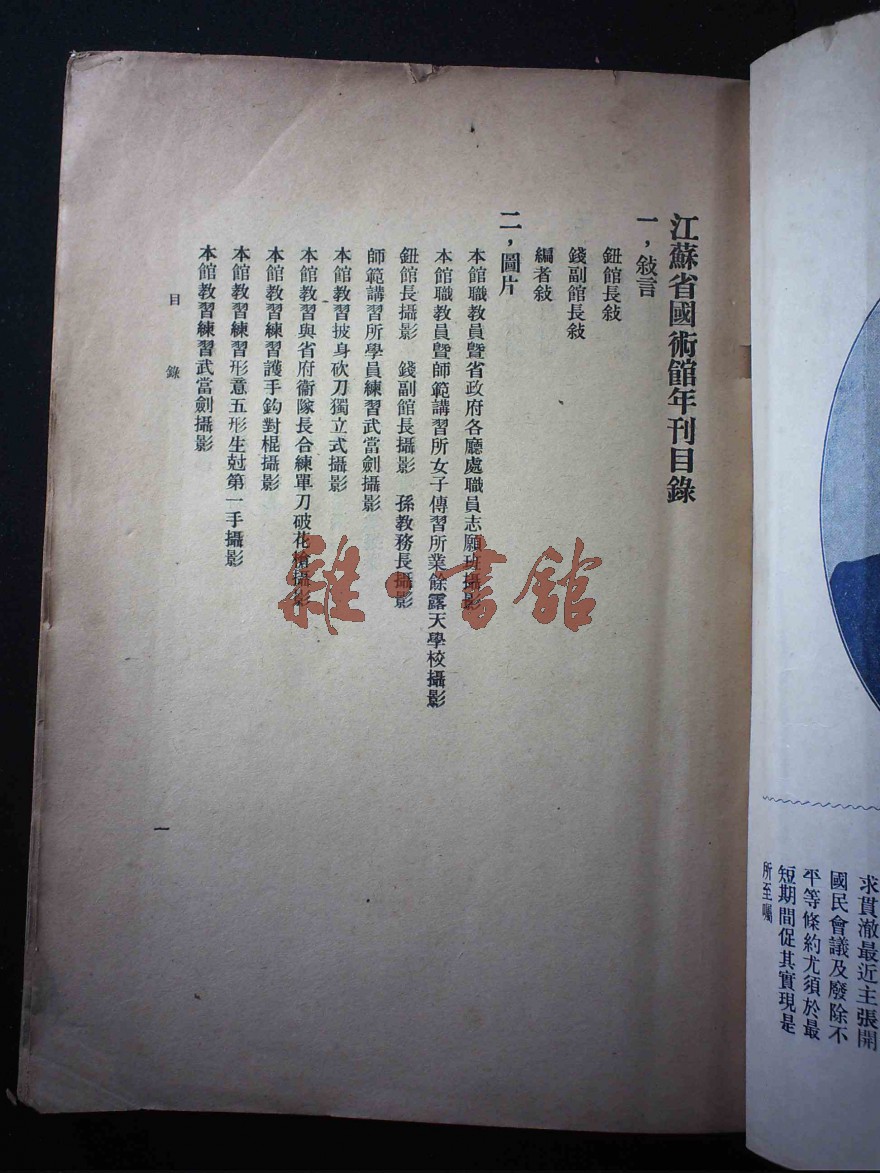 江蘇省國術館年刊目錄
一，敍言
鈕館長敍
錢副館長敍
編者敍
二，圖片
本館職教員暨省政府各廳處職員志願班攝影
本館職教員暨師範講習所女子傳習所業餘露天學校攝影
鈕館長攝影　錢副館長攝影　孫教務長攝影
師範講習所學員練習武當劍攝影
本館教習披身砍刀獨立式攝影
本館教習與省府衞隊長合練單刀破花槍攝影
本館教習練習護手鈎對棍攝影
本館教習練習形意五形生尅第一手攝影
本館教習練習武當劍攝影
目錄
一
雜書館
求貫澈最近主張開
國民會議及廢除不
平等條約尤須於最
短期間促其實現是
所至囑